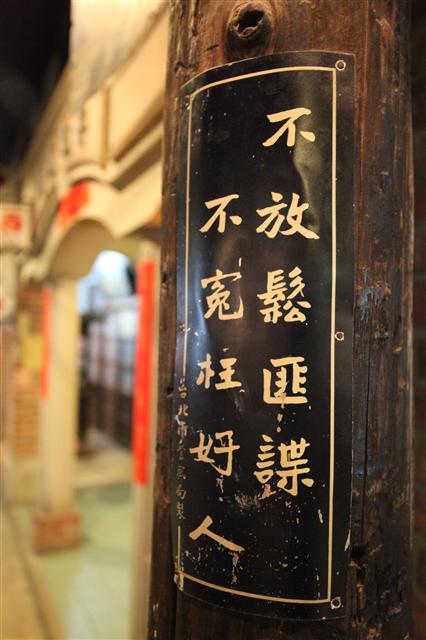 不放鬆匪諜
不寃柱好人
台北市警察局製